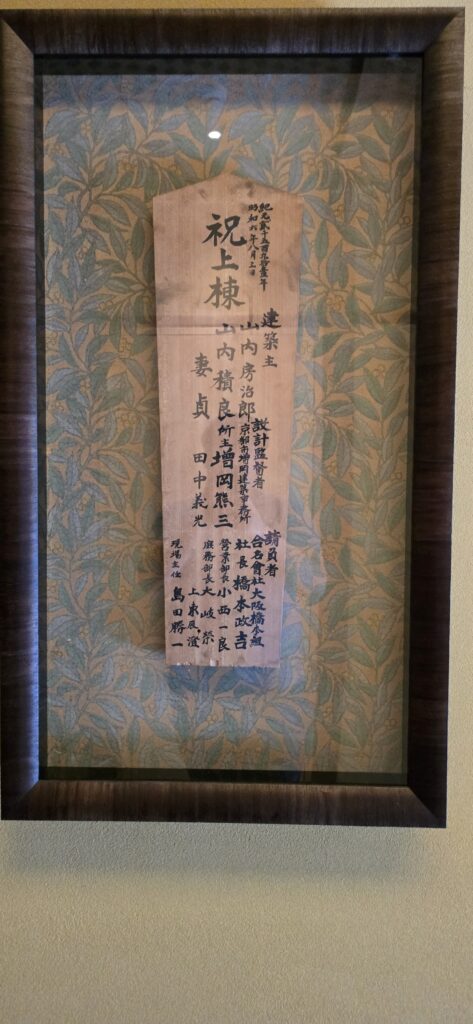 紀元貳千五百九拾壹年
昭和六年八月三日
祝上棟
建築主
山内房治郎
山内積良
妻 貞
設計監督者
京都市増岡建築事務所
所主 増岡熊三
田中義光
請負者
合名會社大阪橋本組
社長 橋本政吉
営業部長 小西一良
庶務部長 大岐榮
上東辰
現場主任 島田勝一